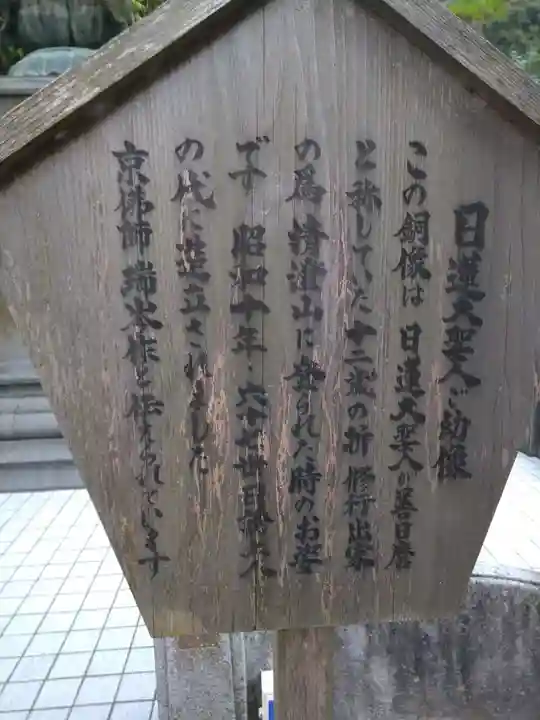 日蓮大聖人ご幼像
この銅像は日蓮大聖人が善日麿
と称していた十二歳の折修行出家
の為清澄山に登られた時のお姿
です 昭和十年・六十七世日
の代に造立されました
京佛師 瑞岑作と伝えられています